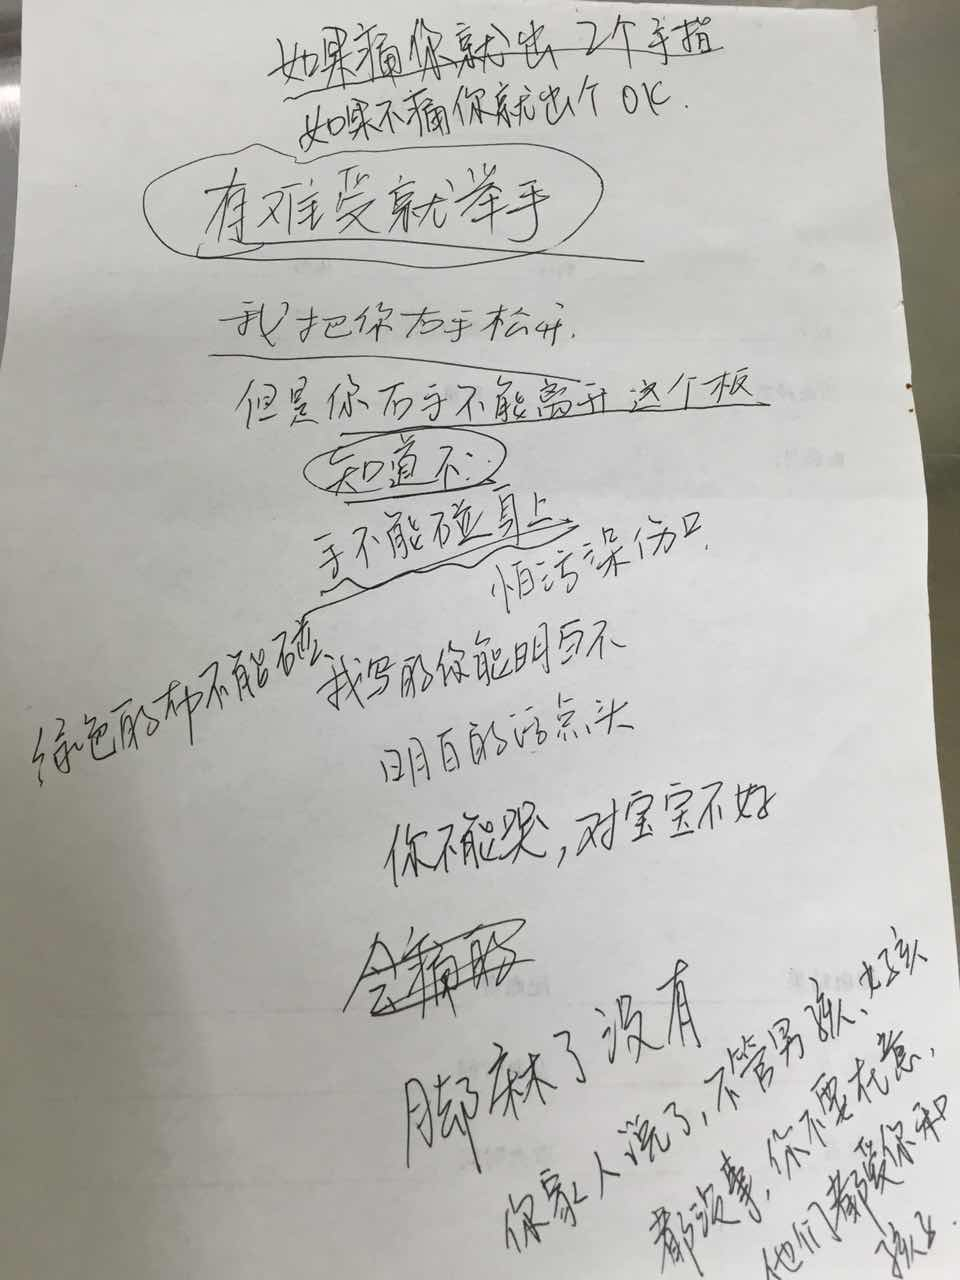 如果痛你就出2个手指
如果不痛你就出个OK.
有难受就举手
我把你右手松开.
但是你右手不能离开这个板
知道不:
手不能碰身上
怕污染伤口.
绿色的布不能碰
我写的你能明白不
明白的话点头
你不能哭,对宝宝不好
会痛的
脚麻了没有
你家人说了,不管男孩、女孩
都没事,你不要在意,
他们都爱你和
孩子.